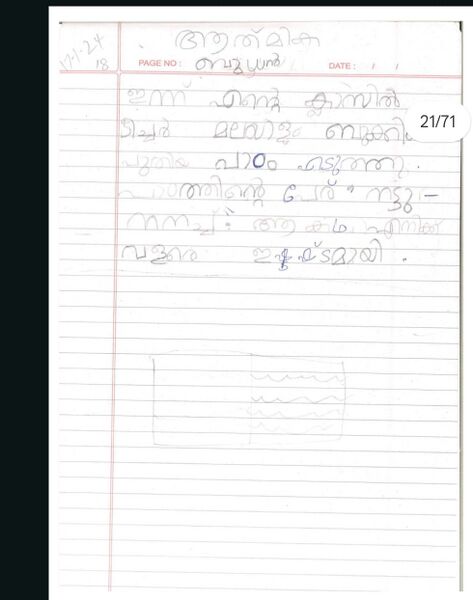 ആത്മിക
17-1-24
18
PAGE NO :
ബുധൻ
DATE : / /
ഇന്ന് എന്റെ ക്ലാസിൽ
ടീച്ചർ മലയാളം ബുക്കിലെ
21/71
പുതിയ പാഠം എടുത്തു.
പാഠത്തിന്റെ പേര് " നട്ടു -
നനച്ച് " ആ കഥ എനിക്ക്
വളരെ ഇഷ്ടമായി .